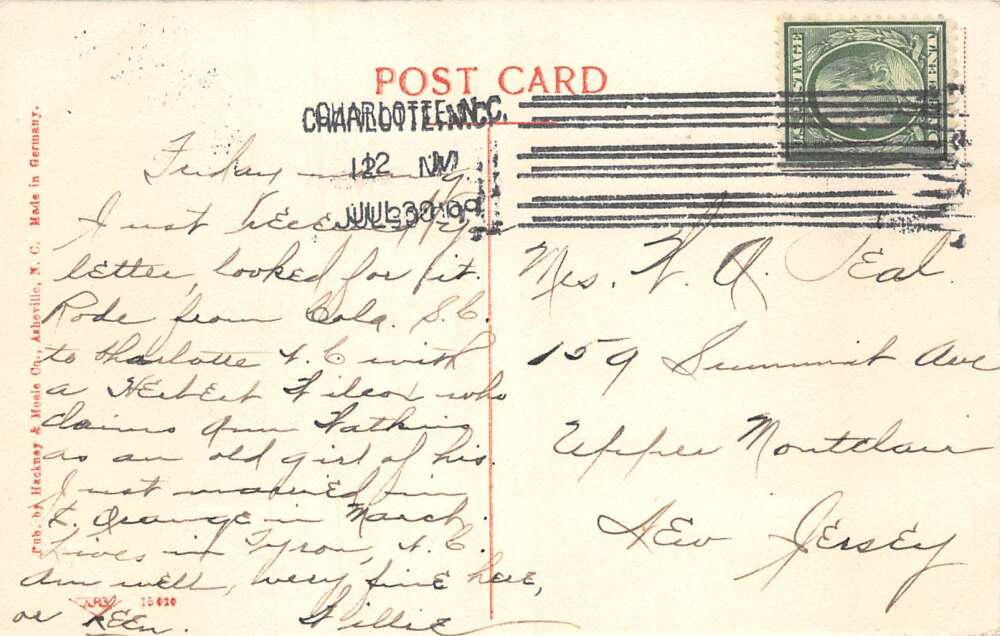 POST CARD
CHARLOTTE, N.C.
12 M
JUL 30 '09
POSTAGE
ONE
Friday morning
Just received your
letter, looked for it.
Rode from Cola. S.C.
to Charlotte N.C with
a Herbert Wilcox who
claims Ann Watkins
as an old girl of his.
Just married in
E. Orange in March.
Lives in Tyron, N.C.
Am well, very fine here,
or KEEN. Willie
Mrs. W. A. Teal
159 Summit Ave
Upper Montclair
New Jersey
Pub. by Hackney & Moale Co., Asheville, N. C. Made in Germany.